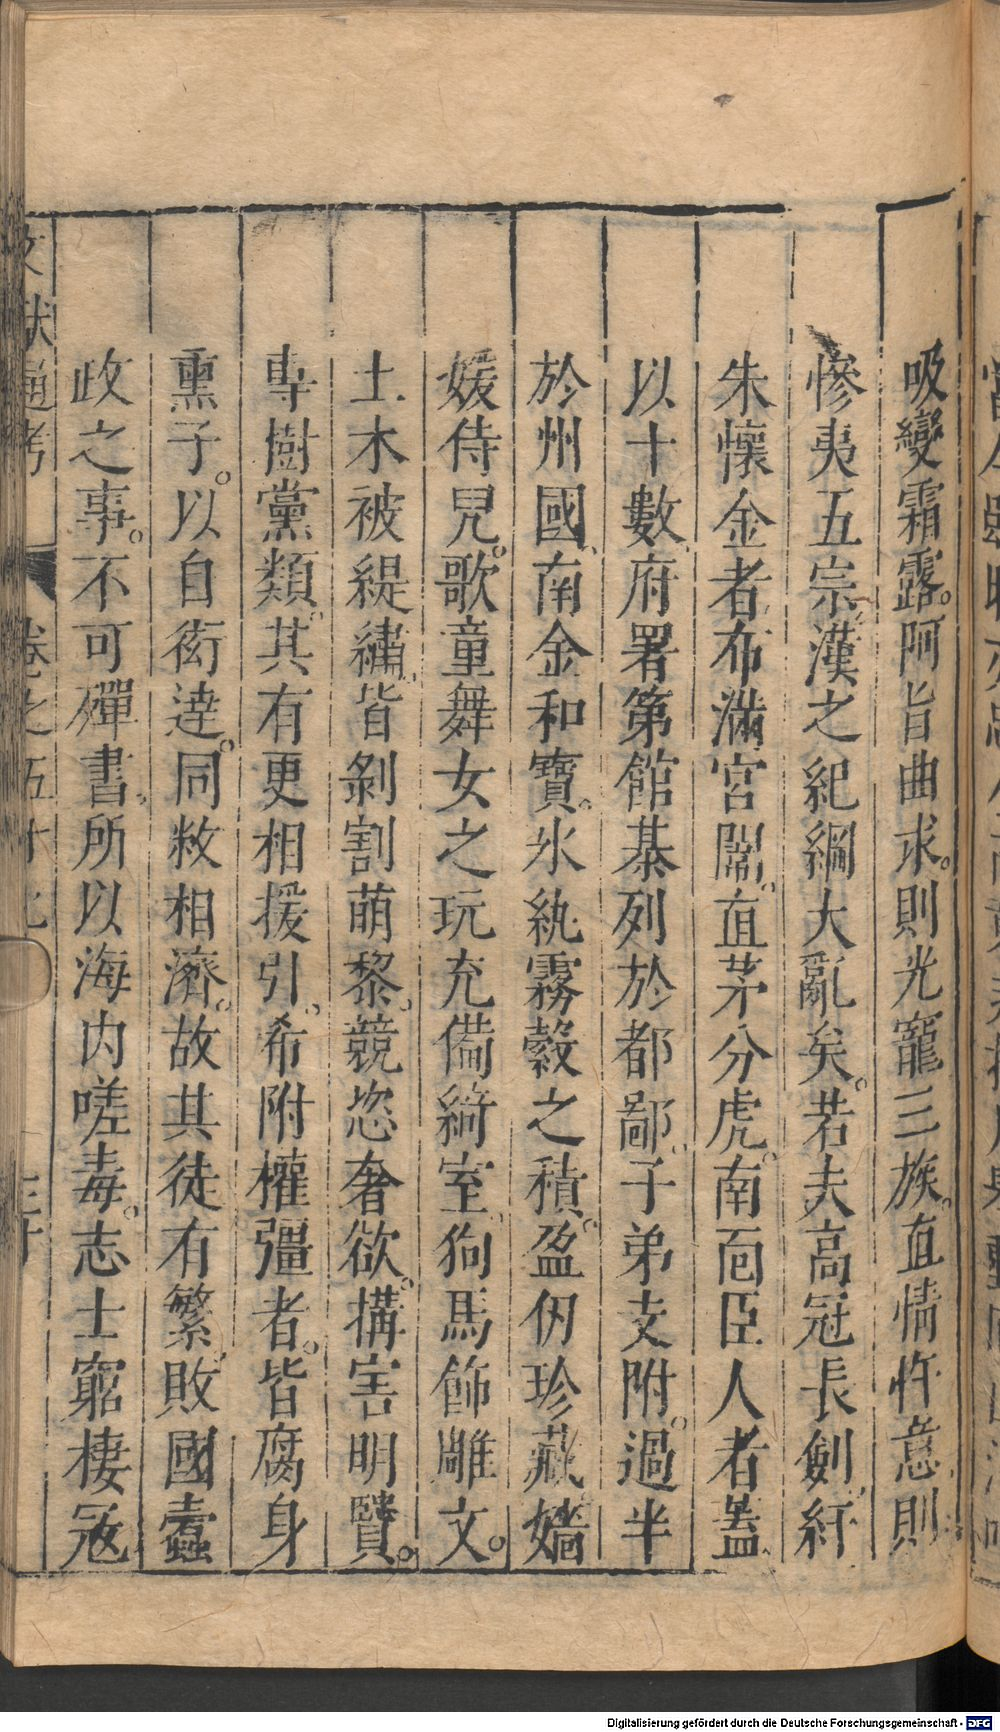 吸變霜露。阿旨曲求。則光寵三族。直情忤意則
慘夷五宗。漢之紀綱大亂矣。若夫高冠長劍、紆
朱懷金者、布滿宮闈。苴茅分虎。南面臣人者蓋
以十數、府署第館棊列於都鄙、子弟支附。過半
於州國、南金和寶。氷紈霧縠之積。盈仞珍藏嬙
媛侍兒。歌童舞女之玩充備綺室、狗馬飾雕文。
土木被緹繡、皆剝割萌黎。競恣奢欲。搆害明賢。
專樹黨類。其有更相援引、希附權彊者。皆腐身
熏子。以自衒達。同敝相濟。故其徒有繁、敗國蠹
政之事。不可殫書、所以海內嗟毒。志士窮棲寇
文獻通考
卷之五十七
三十
Digitalisierung gefördert durch die Deutsche Forschungsgemeinschaft - DFG